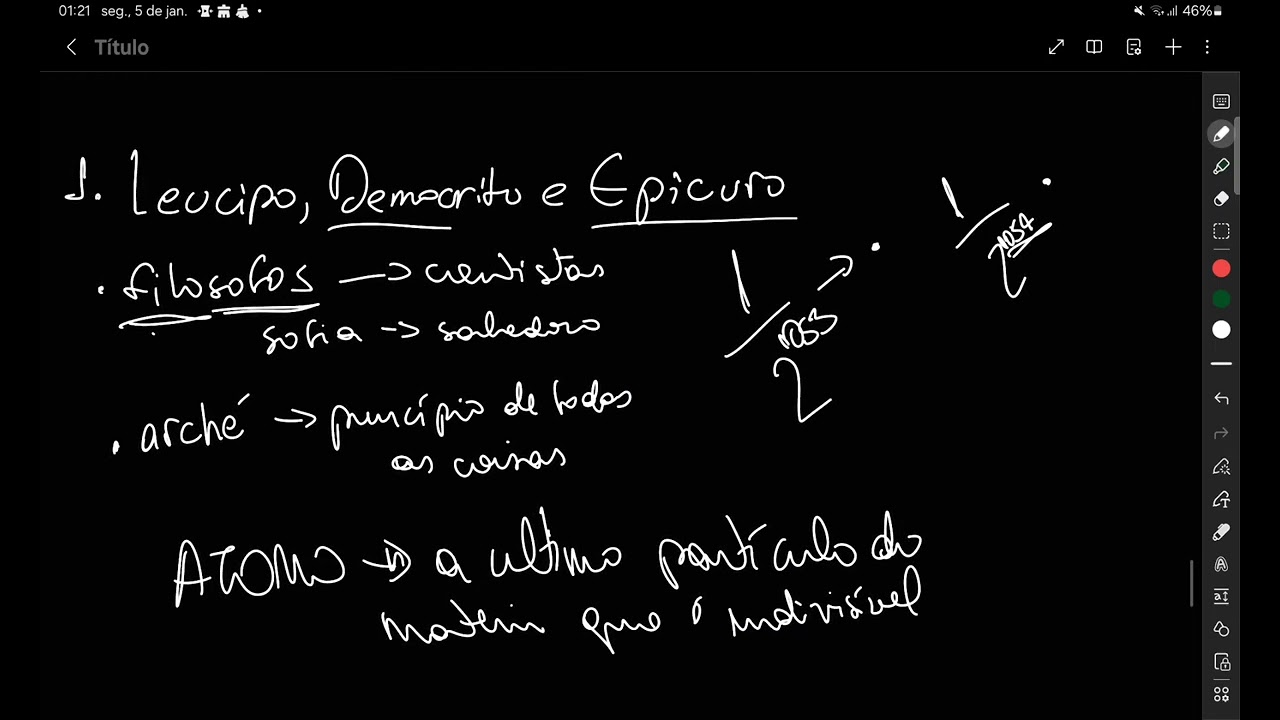 01:21 seg., 5 de jan. 46%
Título
1. Leucipo, Demócrito e Epicuro
• filosofos → cientistas
sofia → sabedoria
• arché → princípio de todas
as coisas
ATOMO → a ultima partícula da
materia que é indivisível
1/2 1053
1/2 1054